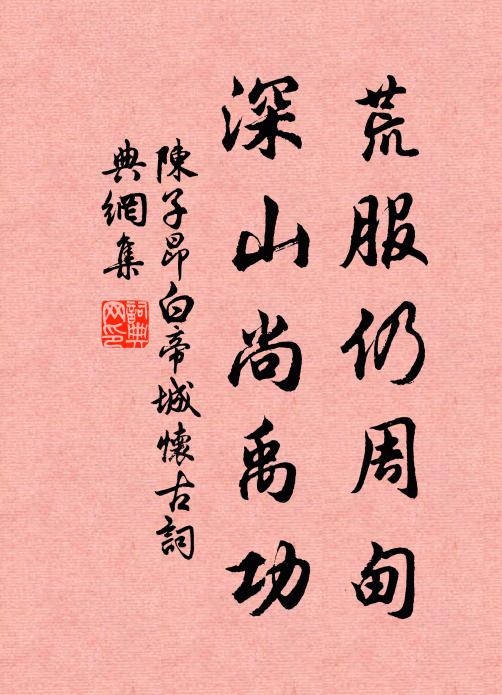 荒服仍周甸
深山尚禹功
陳子昂白帝城懷古詞
典網集
詞典
网印